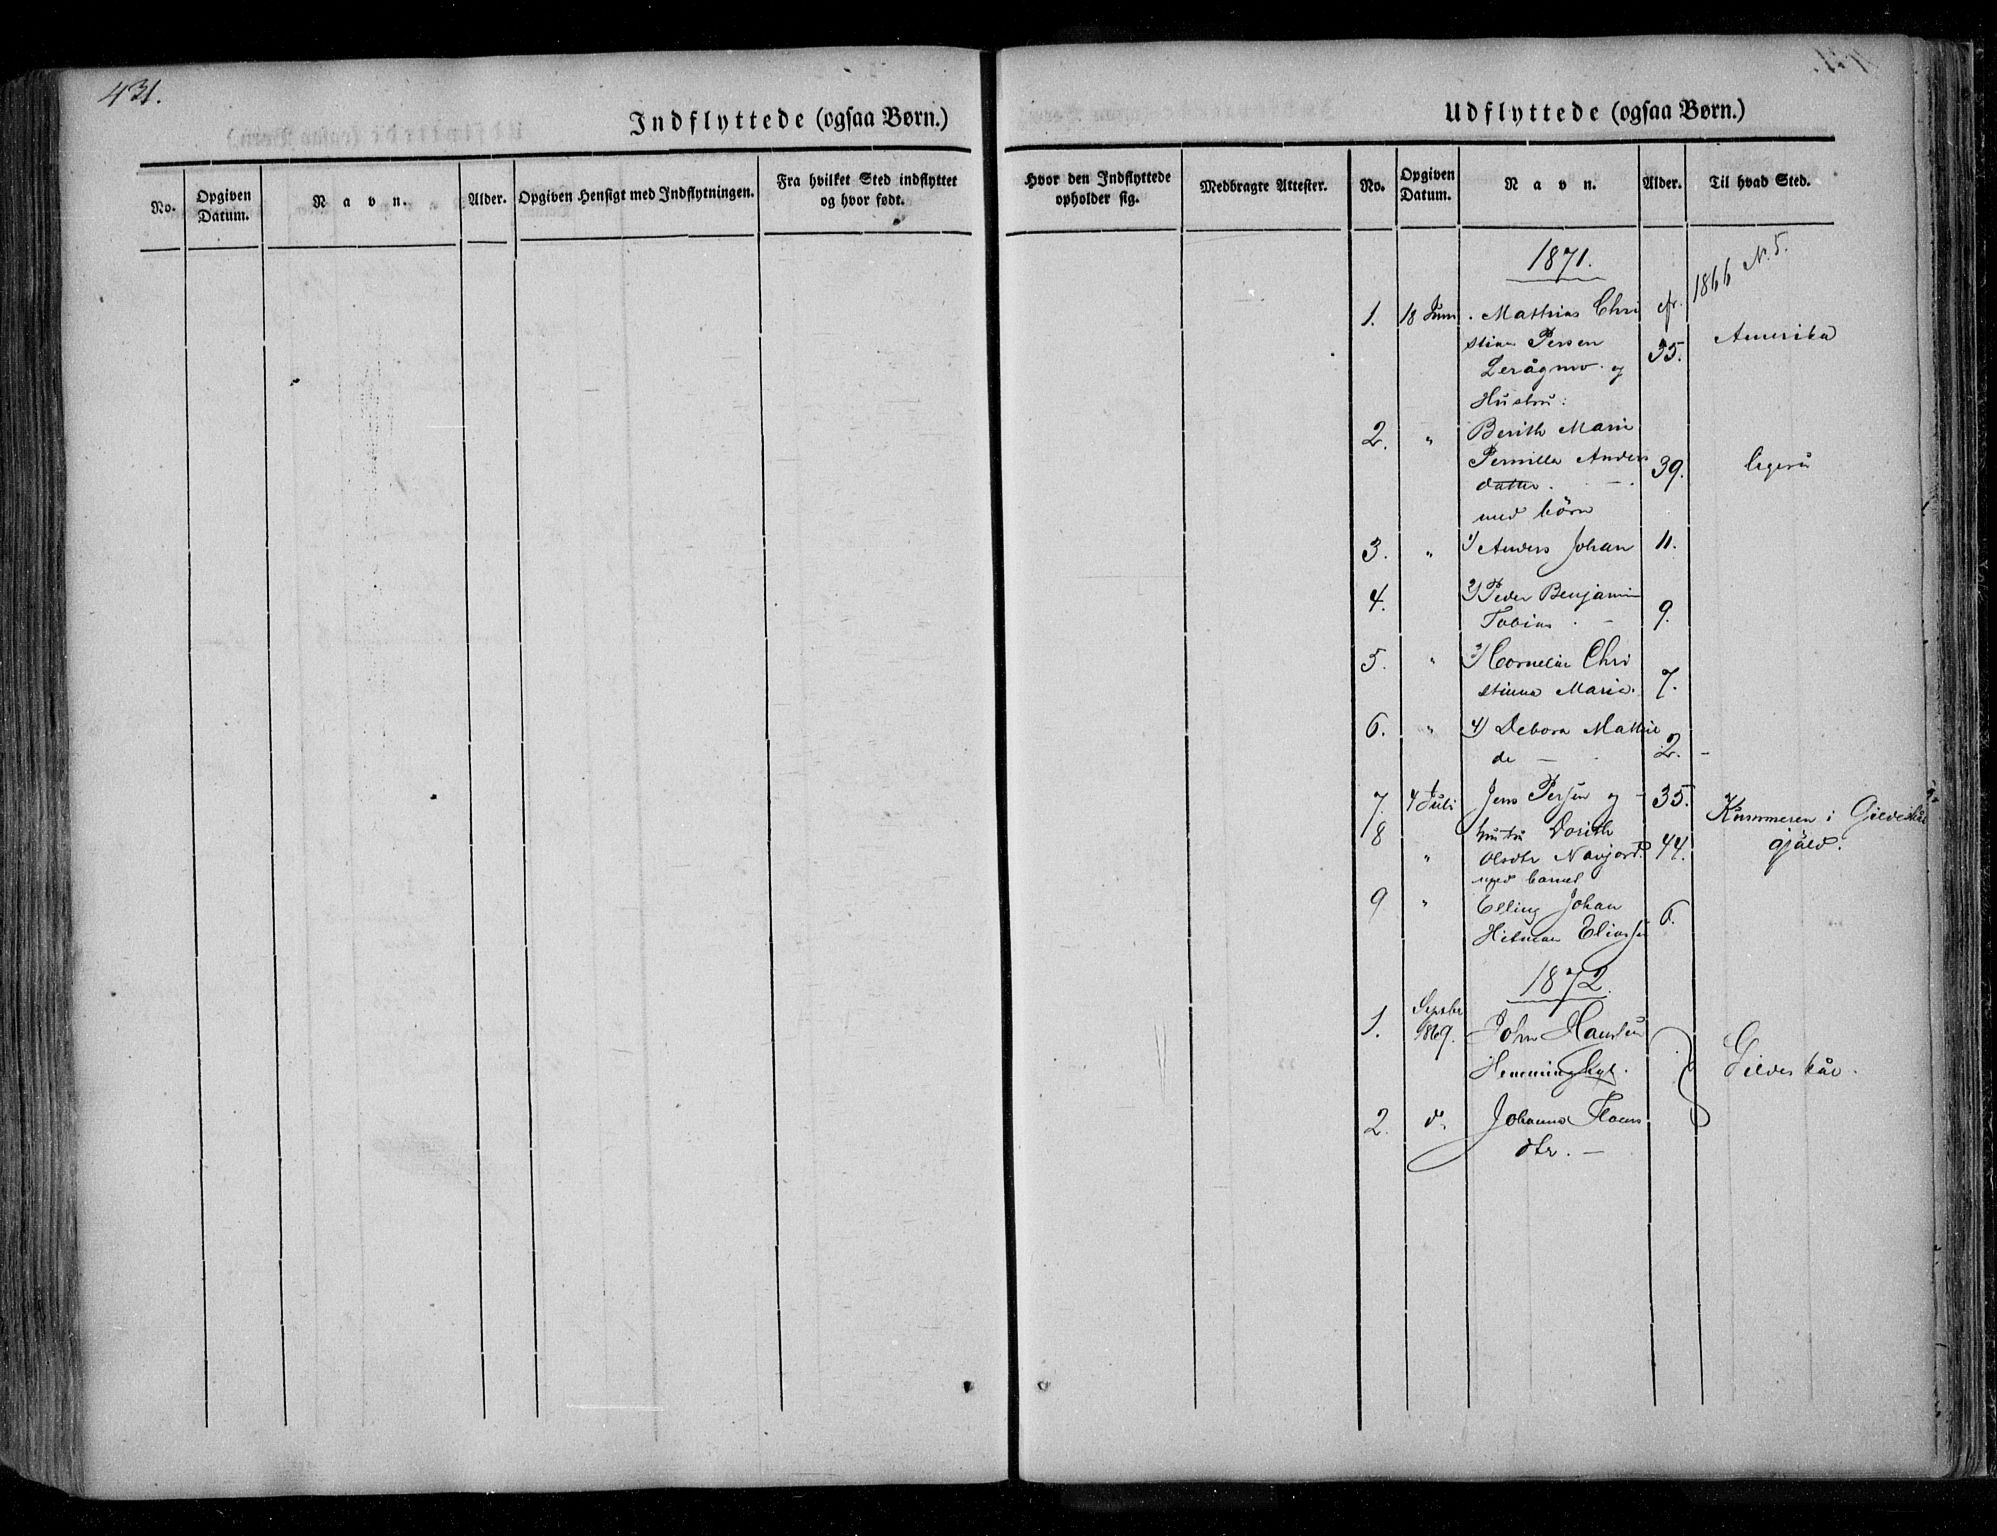 431.
Indflyttede (ogsaa Børn.)
No. Opgiven Datum. Navn. Alder. Opgiven Hensigt med Indflytningen. Fra hvilket Sted indflyttet og hvor født.
Udflyttede (ogsaa Børn.)
Hvor den Indflyttede opholder sig. Medbragte Attester. No. Opgiven Datum. Navn. Alder. Til hvad Sted.
1871.
1. 18 Juni Mathias Chri cfr. 1866 N. 5.
stian Persen 35. Amerika
Lerågmo og
Hustru:
2. " Berith Marie
Pernilla Anders 39. ligeså
datter.
med börn
3. " 1) Anders Johan 11.
4. 2) Peder Benjamin
Tobias - 9.
5. " 3) Cornelia Chri
stinna Marie. 7.
6. " 4) Debora Mathil
de - 2. -
7. 4 Juli Jens Persen og - 35. Kummeren i Gildeskål
8 hustru Dorith gjäld.
" Olsdtr Navjord. 44.
med barnet
9 " Elling Johan 6.
Hitman Eliassen
1872.
1. Septbr 1869. John Hansen
Hemminghyt. Gildeskål.
2. d. Johanna Hans
dtr. -